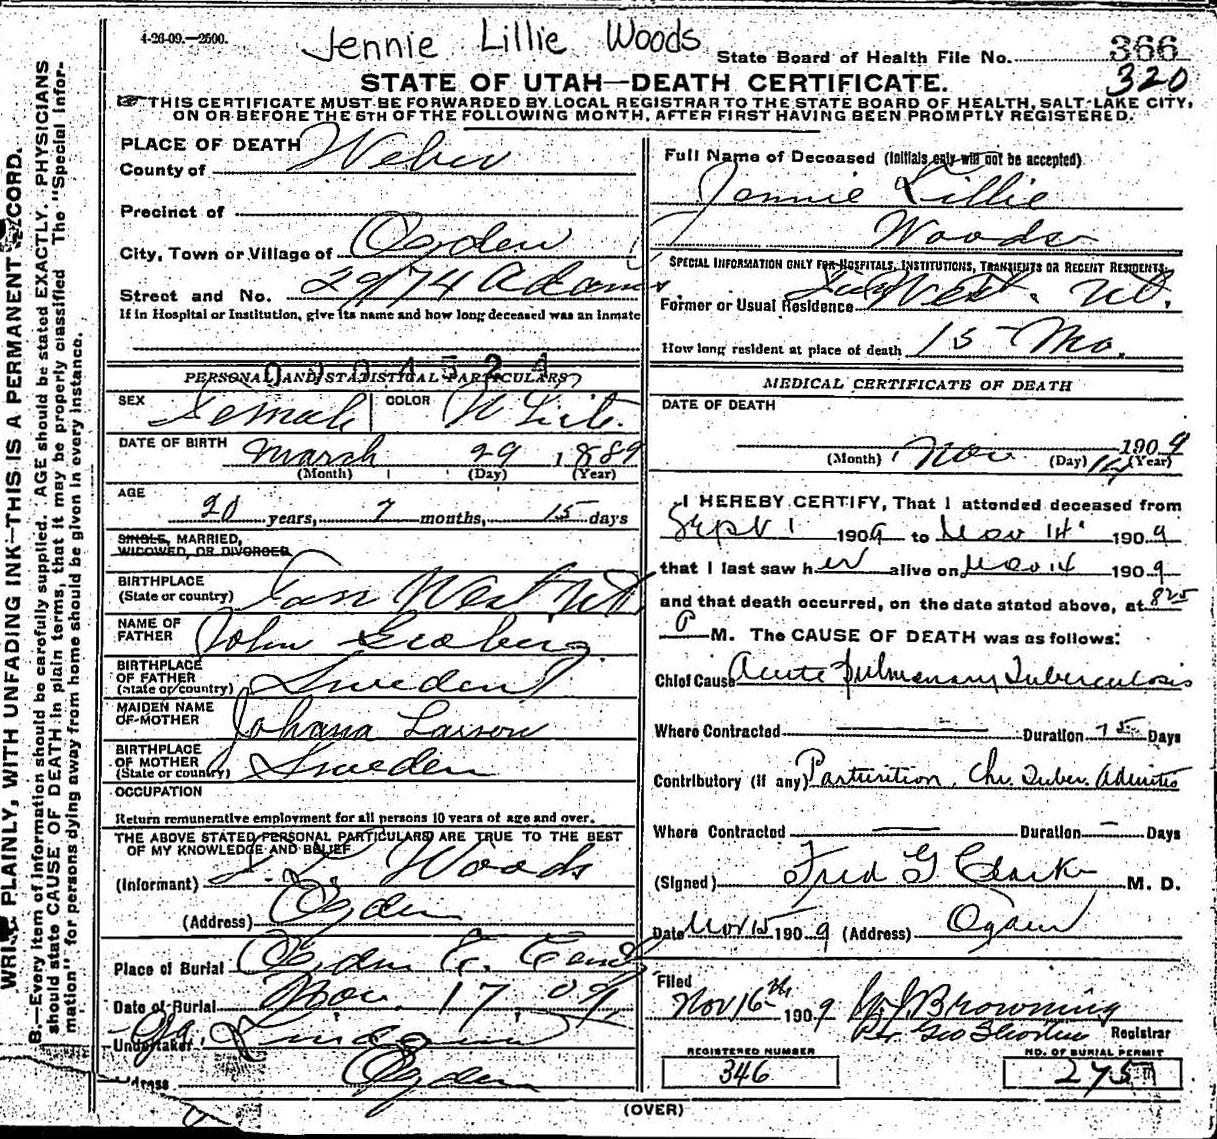 4-26-09.—2500.
Jennie Lillie Woods
State Board of Health File No. 366
320
STATE OF UTAH—DEATH CERTIFICATE.
THIS CERTIFICATE MUST BE FORWARDED BY LOCAL REGISTRAR TO THE STATE BOARD OF HEALTH, SALT LAKE CITY,
ON OR BEFORE THE 5TH OF THE FOLLOWING MONTH, AFTER FIRST HAVING BEEN PROMPTLY REGISTERED.
PLACE OF DEATH
County of Weber
Precinct of
City, Town or Village of Ogden
Street and No. 2974 Adams
If in Hospital or Institution, give its name and how long deceased was an inmate
PERSONAL AND STATISTICAL PARTICULARS
SEX Female COLOR White
DATE OF BIRTH March 29 1889
(Month) (Day) (Year)
AGE
20 years, 7 months, 15 days
SINGLE, MARRIED,
WIDOWED, OR DIVORCED
BIRTHPLACE
(State or country) West Ut
NAME OF
FATHER John
BIRTHPLACE
OF FATHER
(State or country) Sweden
MAIDEN NAME
OF MOTHER Johana Larson
BIRTHPLACE
OF MOTHER
(State or country) Sweden
OCCUPATION
Return remunerative employment for all persons 10 years of age and over.
THE ABOVE STATED PERSONAL PARTICULARS ARE TRUE TO THE BEST
OF MY KNOWLEDGE AND BELIEF
(Informant) Woods
(Address) Ogden
Place of Burial Ogden C.
Date of Burial Nov. 17 09
Undertaker Lindquist
Address Ogden
Full Name of Deceased (Initials only will not be accepted)
Jennie Lillie
Woods
SPECIAL INFORMATION ONLY FOR HOSPITALS, INSTITUTIONS, TRANSIENTS OR RECENT RESIDENTS.
Former or Usual Residence West. Ut.
How long resident at place of death 15 Mo.
MEDICAL CERTIFICATE OF DEATH
DATE OF DEATH
Nov 14 1909
(Month) (Day) (Year)
I HEREBY CERTIFY, That I attended deceased from
Sept 1 1909 to Nov 14 1909
that I last saw her alive on Nov 14 1909
and that death occurred, on the date stated above, at 825
P M. The CAUSE OF DEATH was as follows:
Chief Cause Acute Pulmonary Tuberculosis
Where Contracted Duration 75 Days
Contributory (if any) Parturition, Chr. Tuber. Adenitis
Where Contracted Duration — Days
(Signed) Fred G Clark M. D.
Date Nov 15 1909 (Address) Ogden
Filed
Nov 16th 1909 Browning
Per Geo Registrar
REGISTERED NUMBER
346
NO. OF BURIAL PERMIT
275
(OVER)
WRITE PLAINLY, WITH UNFADING INK—THIS IS A PERMANENT RECORD.
B.—Every item of information should be carefully supplied. AGE should be stated EXACTLY. PHYSICIANS
should state CAUSE OF DEATH in plain terms, that it may be properly classified. The "Special Infor-
mation" for persons dying away from home should be given in every instance.